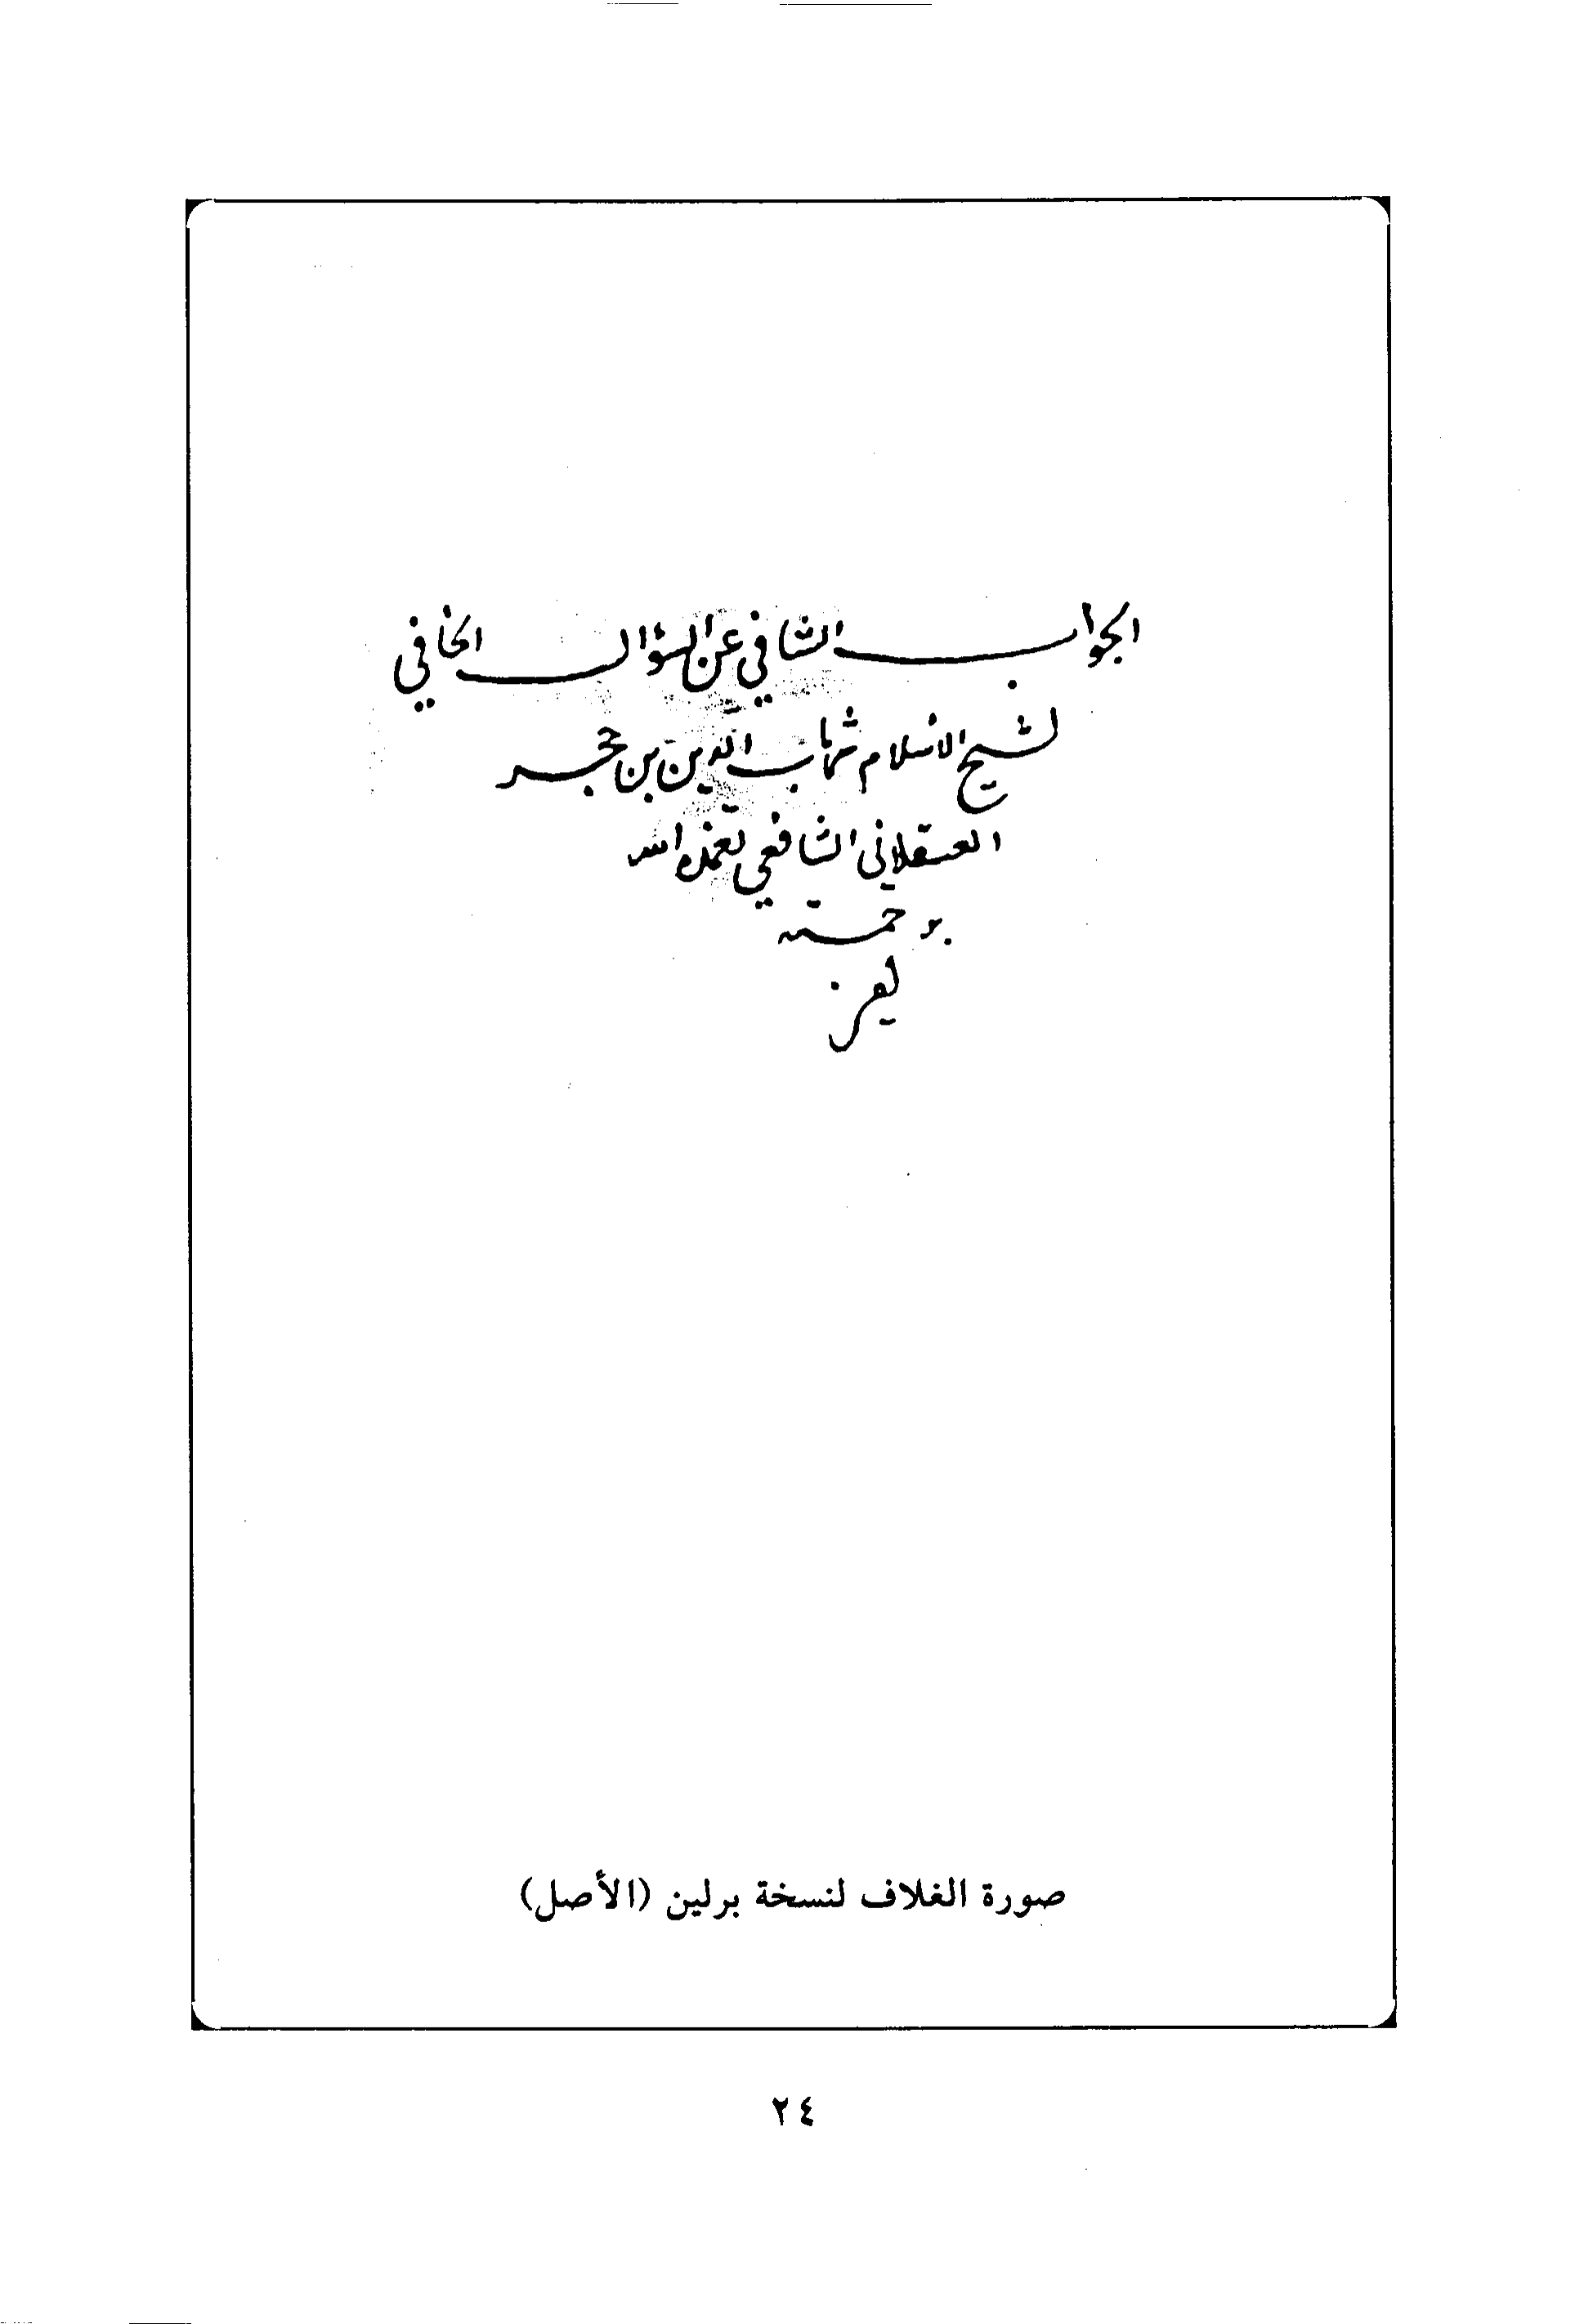 الجواب الشافي عن السؤال الخافي
لشيخ الاسلام شهاب الدين بن حجر
العسقلاني الشافعي تغمده الله
برحمته
صورة الغلاف لنسخة برلين (الأصل)
٢٤